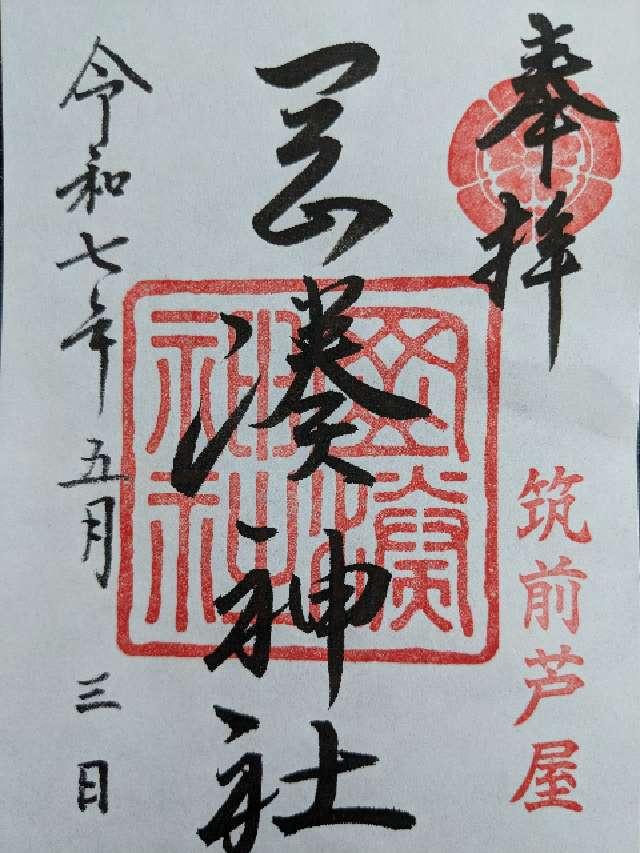 奉拝
筑前芦屋
岡湊神社
岡湊神社
令和七年五月三日